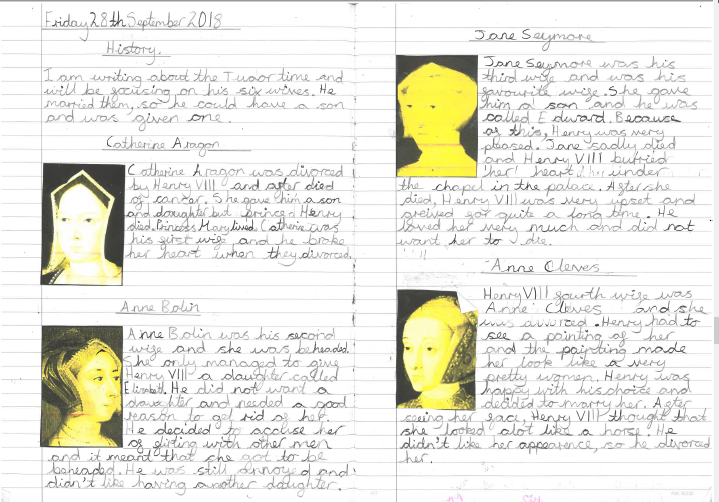 Friday 28th September 2018
History.
I am writing about the Tudor time and
will be focusing on his six wives. He
married them, so he could have a son
and was given one.
Catherine Aragon
Catherine Aragon was divorced
by Henry VIII and after died
of cancer. She gave him a son
and daughter but prince Henry
died. Princess Mary lived. Catherine was
his first wife and he broke
her heart when they divorced.
Anne Bolin
Anne Bolin was his second
wife and she was beheaded.
She only managed to give
Henry VIII a daughter called
Elizabeth. He did not want a
daughter and needed a good
reason to get rid of her.
He decided to accuse her
of flirting with other men
and it meant that she got to be
beheaded. He was still annoyed and
didn't like having another daughter.
Jane Seymore
Jane Seymore was his
third wife and was his
favourite wife. She gave
him a son and he was
called Edward. Because
of this, Henry was very
pleased. Jane sadly died
and Henry VIII burried
her heart under
the chapel in the palace. After she
died, Henry VIII was very upset and
greived for quite a long time. He
loved her very much and did not
want her to die.
Anne Cleves
Henry VIII fourth wife was
Anne Cleves and she
was divorced. Henry had to
see a painting of her
and the painting made
her look like a very
pretty women. Henry was
happy with his choice and
decided to marry her. After
seeing her face, Henry VIII thought that
she looked alot like a horse. He
didn't like her appearence, so he divorced
her.